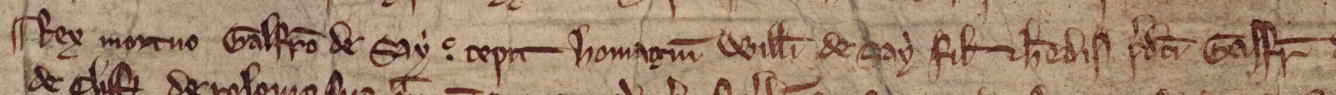 ¶ Rex mortuo Galfro de Say : cepit homagiu Willi de Say fil & hedis pdci Galfr
de